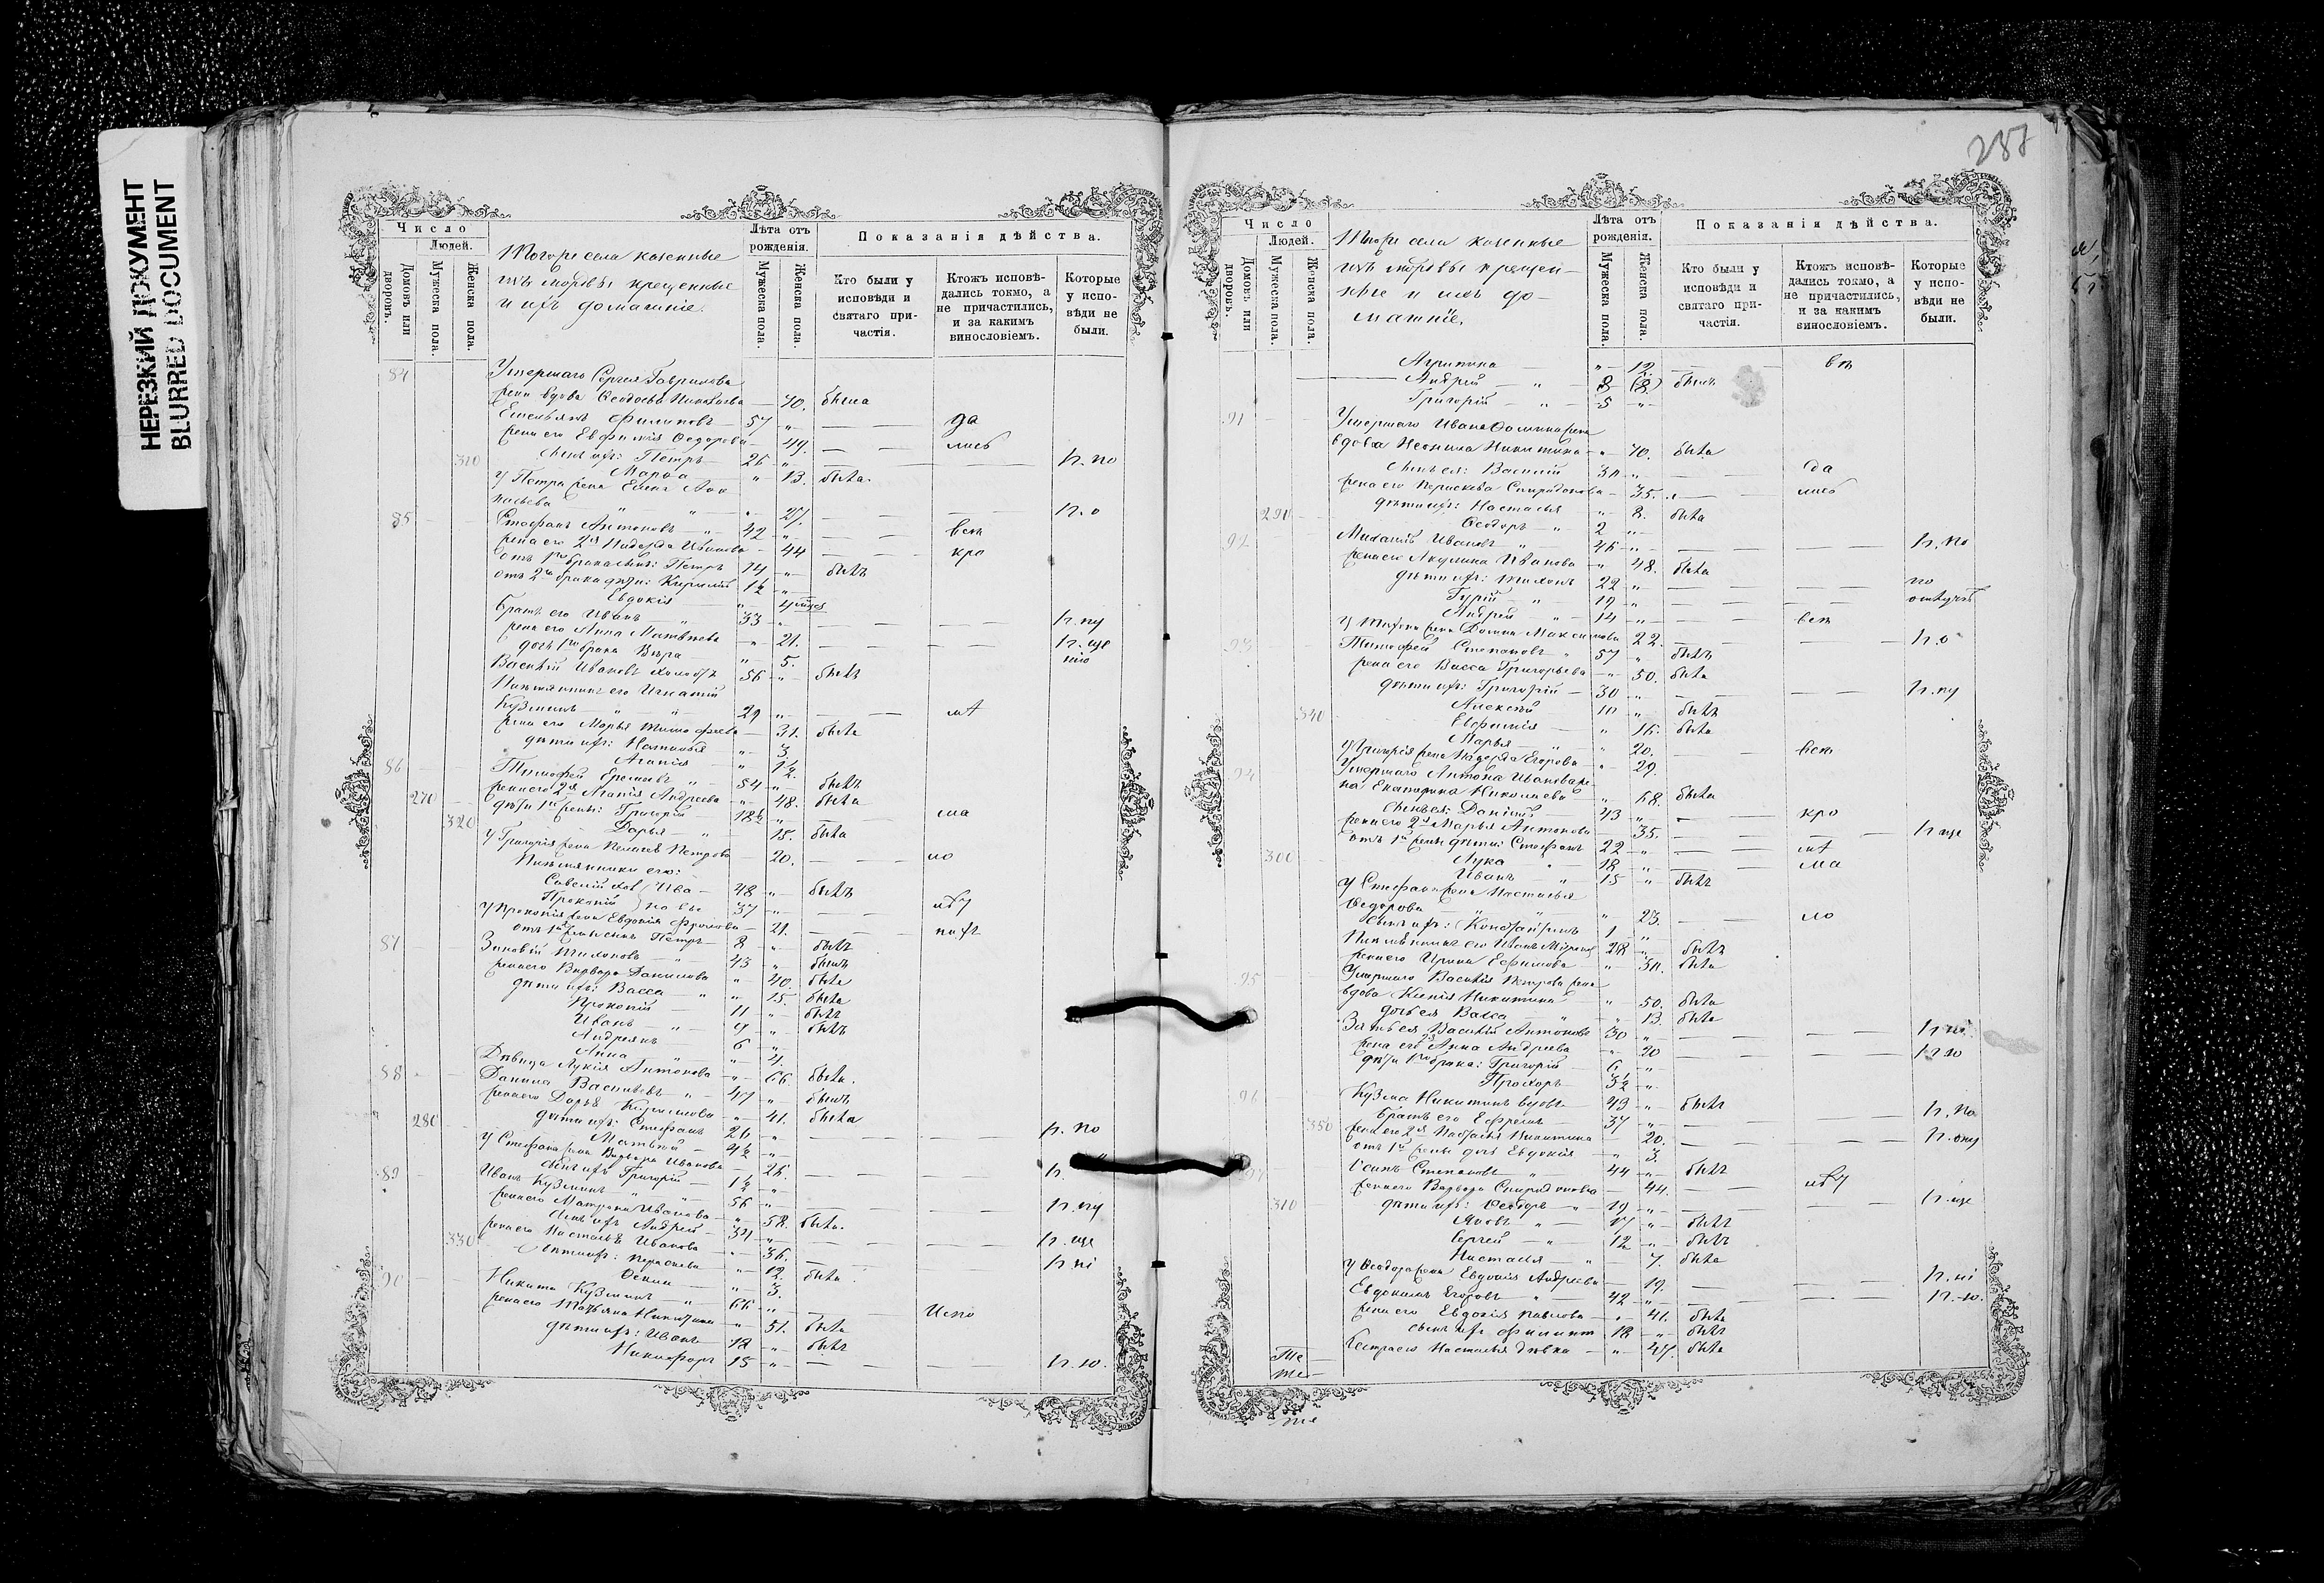 НЕРЕЗКИЙ ДОКУМЕНТ
BLURRED DOCUMENT
Число
Людей.
Домовъ или дворовъ.
Мужеска пола.
Женска пола.
Тогоже села казенные
изъ мордвы крещенные
и ихъ домашніе.
Лѣта отъ рожденія.
Мужеска пола.
Женска пола.
Показанія дѣйства.
Кто были у исповѣди и святаго причастія.
Ктожъ исповѣдались токмо, а не причастились, и за какимъ винословіемъ.
Которые у исповѣди не были.
84 Умершаго Сергея Гаврилова
жена вдова Ѳеодосья Николаева 70. была
Емельянъ Филиповъ 57 " да
жена его Евфимія Ѳедорова 49. лись
310 сынъ ихъ: Петръ 26 " н. по
Марѳа " 13. была.
У Петра жена Елена Афа
насьева " " " 27. н. о
85 Стефанъ Антоновъ " 42 " всѣ
жена его 2я Надежда Иванова 44 кро
отъ 1го брака сынъ: Петръ 14 " былъ
отъ 2го брака дѣти: Кирилъ 1½ "
Евдокія "
Братъ его Иванъ " 33 " н. пу
жена его Анна Матвѣева " 21. н. ще
дочь 1го брака Вѣра " 5. нію
Василій Ивановъ холостъ 56 " былъ
Племянникъ его Игнатій
Кузминъ " " 29 "
жена его Марья Тимофеева 31. была
дѣти ихъ: Наталья " 3
Агапія " 1½.
86 Тимофей Еремеевъ " 54 " былъ
270 жена его 2я Агапія Андреева " 48. была
дѣти 1й жены: Григорій 18½ " ма
320 Дарья " 15. была
У Григорія жена Пелагея Петрова 20. ло
Племянники его:
Савелій хол. Ива- 48 " былъ
Прокопій новы 37 "
У Прокопія жена Евдокія Фролова 21.
отъ 1й жены сынъ Петръ 8 " былъ
87 Зиновій Тихоновъ " 43 " былъ
жена его Варвара Данилова " 40. была
дѣти ихъ: Васса " " 15. была
Прокопій 11 " былъ
Иванъ " 9 " былъ
Андреянъ 6 "
Анна " " 4.
Дѣвица Лукія Антонова " 66 была.
88 Данила Васильевъ " 47 " былъ
жена его Дарья Кирилова " 41. была
280 дѣти ихъ: Стефанъ 26 " н. по
Матвѣй 4½ "
У Стефана жена Варвара Иванова 26. н.
сынъ ихъ Григорій 1½ "
89 Иванъ Кузминъ " " 56 " н. пу
жена его Матрона Иванова " 58. была.
сынъ ихъ Андрей 34 " н. ще
330 жена его Настасья Иванова " 36. н. ні
дѣти ихъ: Параскева " 12. была
" 3.
90 Никита Кузминъ " 66 " Испо
жена его Татьяна Никитина " 51. была
дѣти ихъ: Иванъ 18 " былъ
Никифоръ 15 " н. ю.
287
Число
Людей.
Домовъ или дворовъ.
Мужеска пола.
Женска пола.
Тогоже села казенные
изъ мордвы крещен-
ные и ихъ до-
машніе.
Лѣта отъ рожденія.
Мужеска пола.
Женска пола.
Показанія дѣйства.
Кто были у исповѣди и святаго причастія.
Ктожъ исповѣдались токмо, а не причастились, и за какимъ винословіемъ.
Которые у исповѣди не были.
Агрипина " 12.
Андрей " 8 (8.) былъ
Григорій " 5 "
91 Умершаго Ивана Фомина жена
вдова Неонила Никитина " 70. была
сынъ ея: Василій 30 " да
жена его Параскева Спиридонова 35. лись
290 дѣти ихъ: Настасья " 8. была
Ѳеодоръ " 2 "
92 Михаилъ Ивановъ " 46 " н. по
жена его Акулина Иванова " 48. была
дѣти ихъ: Тихонъ 22 " по
Гурій " 19 " отлуч.
Андрей " 14 " всѣ
У Тихона жена Домна Максимова 22. н. о
93 Тимофей Степановъ " 57 " былъ
жена его Васса Григорьева " 50. была
дѣти ихъ: Григорій 30 " н. пу
Алексѣй 10 " былъ
340 Евфимія " 16. была
Марья " " 20. всѣ
У Григорія жена Надежда Егорова " 29.
94 Умершаго Антона Иванова же-
на Екатерина Николаева " 68. была
сынъ ея: Даніилъ 43 " кро
жена его 2я Марья Антонова 35. н. ще
отъ 1й жены дѣти: Стефанъ 22 "
300 Лука 18 " ма
Иванъ " 15 " былъ
У Стефана жена Настасья
Ѳедорова " " " 23. ло
сынъ ихъ: Константинъ 1 "
Племянникъ его Иванъ 28 " былъ
жена его Ирина Ефимова " 30. была
95 Умершаго Василія Петрова жена
вдова Ксенія Никитина " 50. была
дочь ея Васса " " 13. была
Зять ея Василій Антоновъ 30 "
жена его Анна Андреева " 20
дѣти 1го брака: Григорій 6 "
Прохоръ 3½ "
96 Кузма Никитинъ вдовъ 49 " былъ
Братъ его Ефремъ 37 " н. по
350 жена его 2я Никитина 20.
отъ 1й жены дочь Евдокія " 3.
97 Осипъ Степановъ " 44 " былъ
жена его Варвара Спиридонова 44.
310 дѣти ихъ: Ѳеодоръ " 19 " н. ще
Яковъ " 17 " былъ
Сергей " 12 " былъ
Настасья " 7. была
У Ѳеодора жена Евдокія Андреева 19. н. ні
Евдокимъ Егоровъ " 42 " н. ю.
жена его Евдокія Павлова " 41. была
сынъ ихъ Филипъ 18 " былъ
Сестра его Настасья дѣвка " 47. была